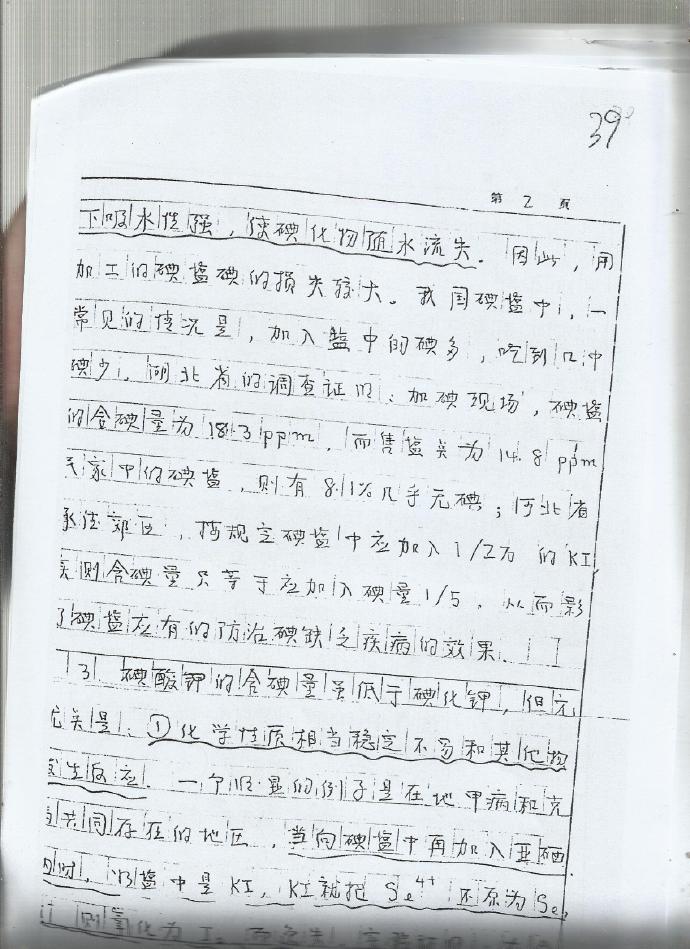 39
第 2 頁
下吸水性强，使碘化物随水流失。因此，用
加工的碘盐碘的损失较大。我国碘盐中，一
常见的情况是，加入盐中的碘多，吃到口中
碘少。湖北省的调查证明：加碘现场，碘盐
的含碘量为18.3ppm，而售盐关为14.8ppm
家中的碘盐，则有8.1%几乎无碘；河北省
承德郊区，按规定碘盐中应加入1/2万的KI
实则含碘量只等于应加入碘量1/5，从而影
了碘盐应有的防治碘缺乏疾病的效果。
13、碘酸钾的含碘量虽低于碘化钾，但
尤美是：①化学性质相当稳定不易和其他物
发生反应。一个明显的例子是在地甲病和克
共同存在的地区，当向碘盐中再加入亚硒
时，如盐中是KI，KI就把Se4+还原为Se，
则氧化为I2